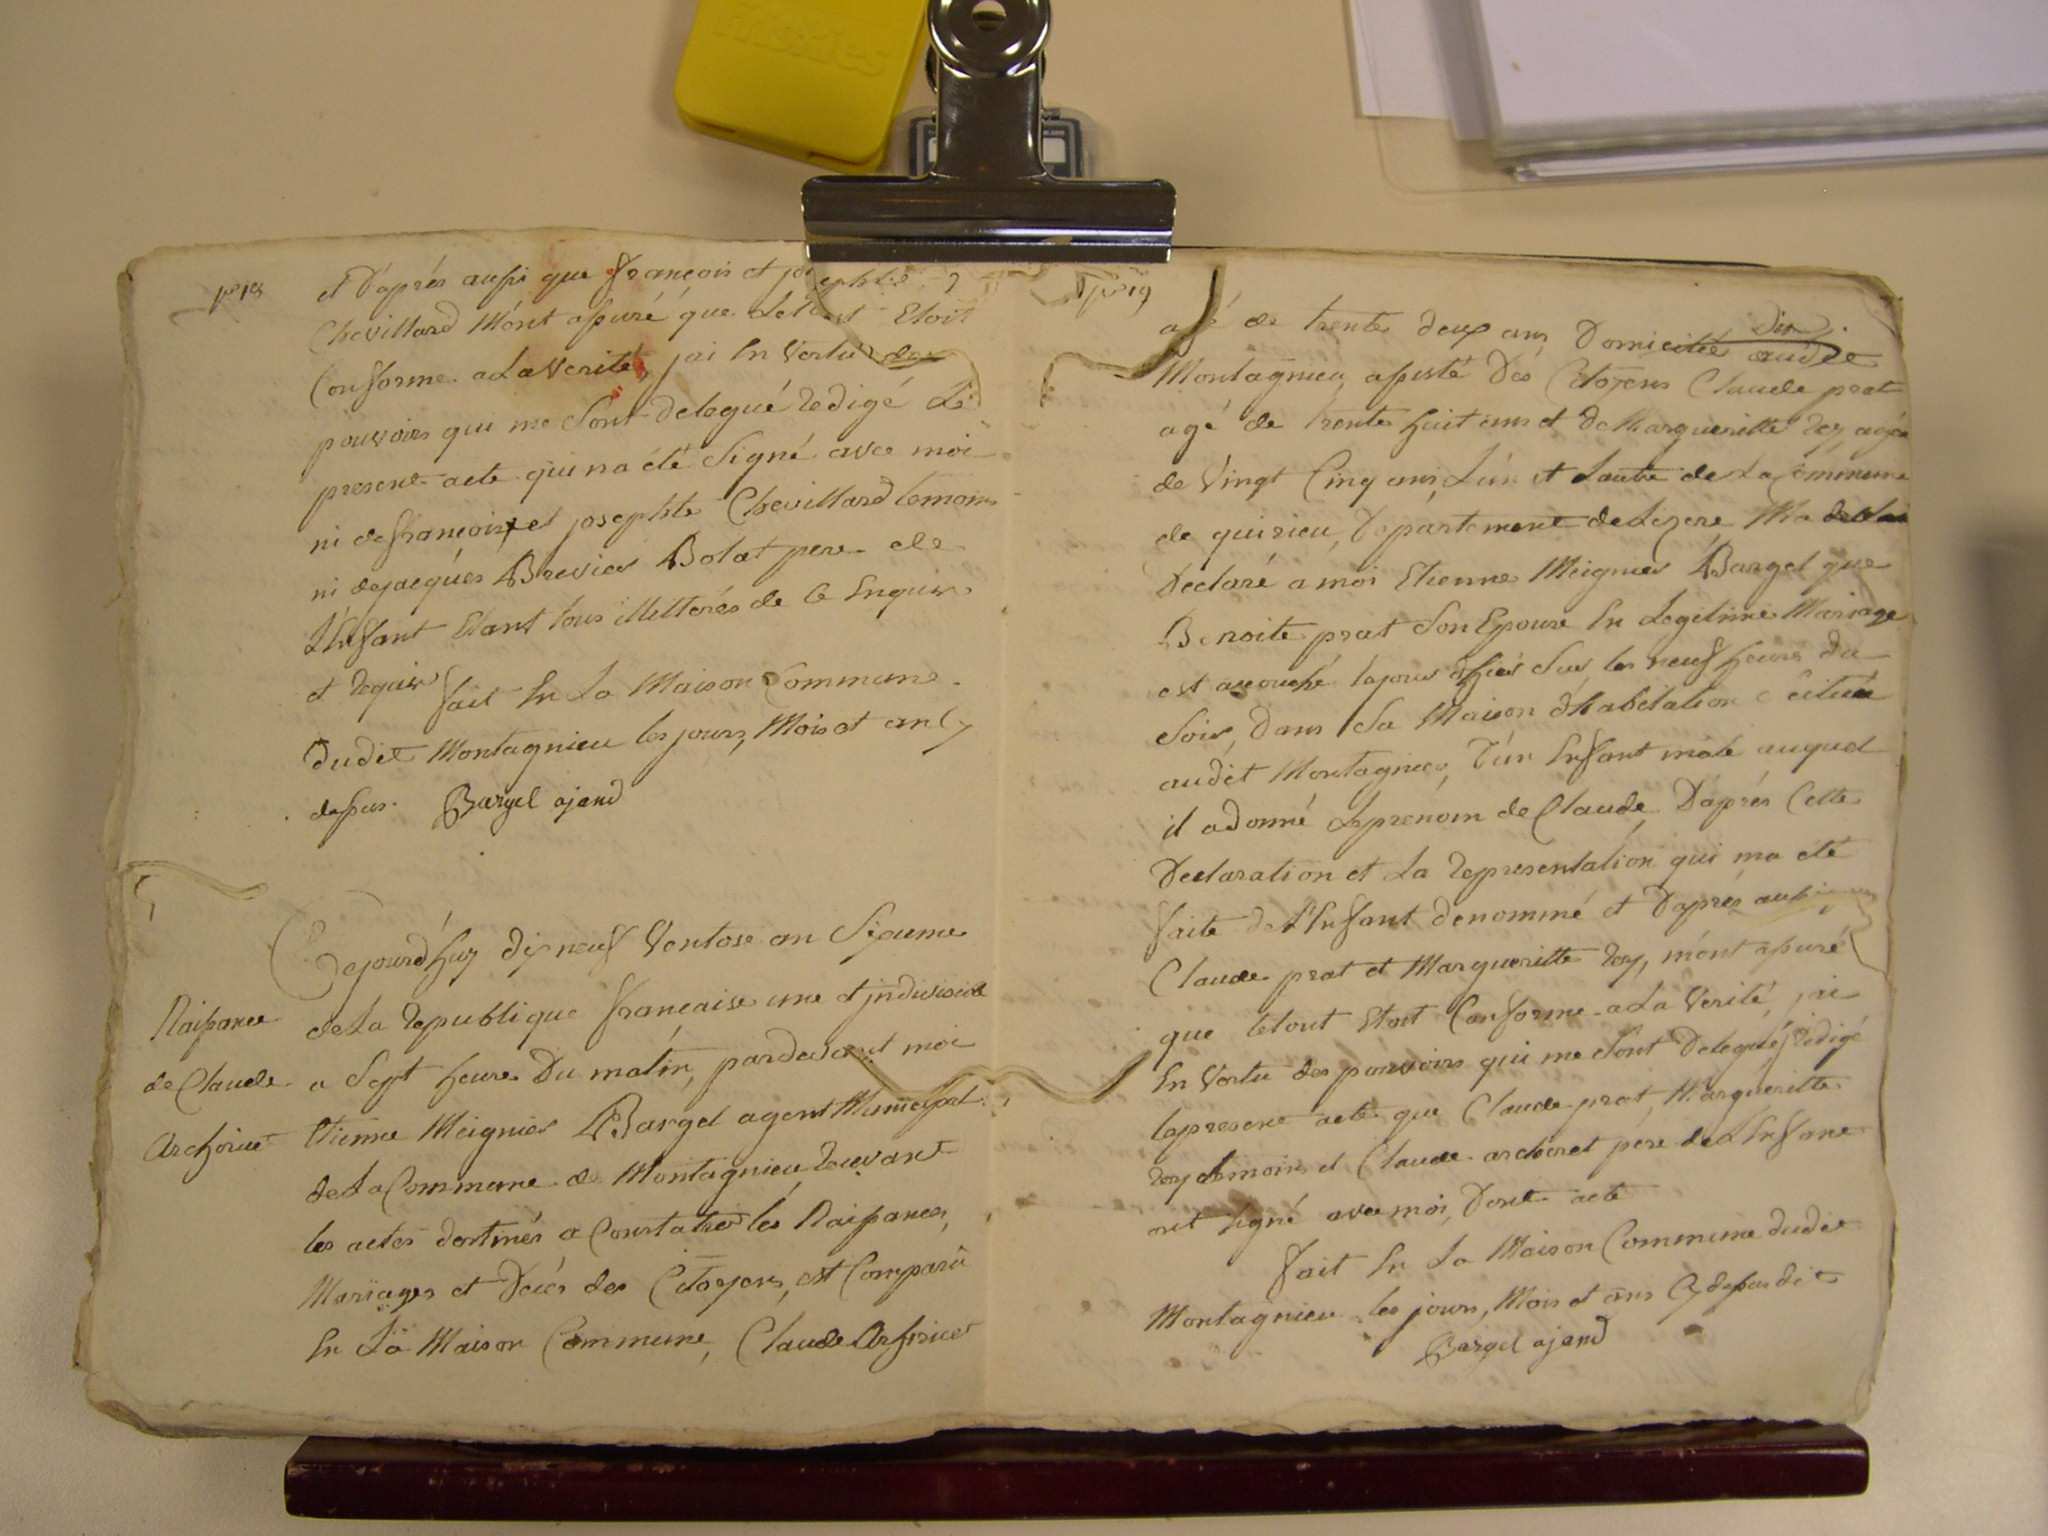 et D'aprés aussi que François et josephte
Chevillard M'ont assuré que Letout Etoit
Conforme a La Verité, jai En Vertu des
pouvoirs qui me Sont delegué redigé Le
present acte qui na été Signé avec moi
ni de françois et josephte Chevillard temoins
ni de jacques Brevier Bolat pere de
L'Enfant Etant tous illitterés de Ce Enquis
et requis fait En La Maison Commune
dudit Montagnieu les jours, Mois et an Cy
dessus. Bargel ajend
Cejourd'huy dixneuf Ventose an Sixieme
Naissance
de Claude
Archinet
de La republique francaise une et jndivisible
a Sept heure Du matin, pardevant moi
Etienne Meignier Bargel agent Municipal
de La Commune de Montagnieu, recevant
les actes destinés a Constater les Naissances,
Mariages et Decés des Citoyens, est Comparu
En La Maison Commune, Claude
agé de trente deux ans Domicilié audit
Montagnieu assisté Des Citoyens Claude prat
agé de trente huit ans et de Margueritte rey agée
de Vingt Cinq ans, L'un et Lautre de La Commune
de quirieu, Departement de Lizere Ma
Declaré a moi Etienne Meignier Bargel que
Benoite prat Son Epouse En Legitime Mariage
est accouché lejour d'hier Sur les neuf heures du
Soir, Dans Sa Maison d'habitation Cituée
audit Montagnieu, D'un Enfant male auquel
il a donné Le prenom de Claude, D'aprés Cette
Declaration et La representation qui ma été
faite de L'Enfant denommé et D'aprés aussi
Claude prat et Margueritte rey, m'ont assuré
que letout Etoit Conforme a La Verité, jai
En Vertu des pouvoirs qui me Sont Delegué, redigé
lepresent acte que Claude prat, Margueritte
rey temoins et Claude archinet pere de L'Enfant
ont signé avec moi, Dont acte
fait En La Maison Commune dudit
Montagnieu les jours, Mois et ans Cy dessus dit
Bargel ajend